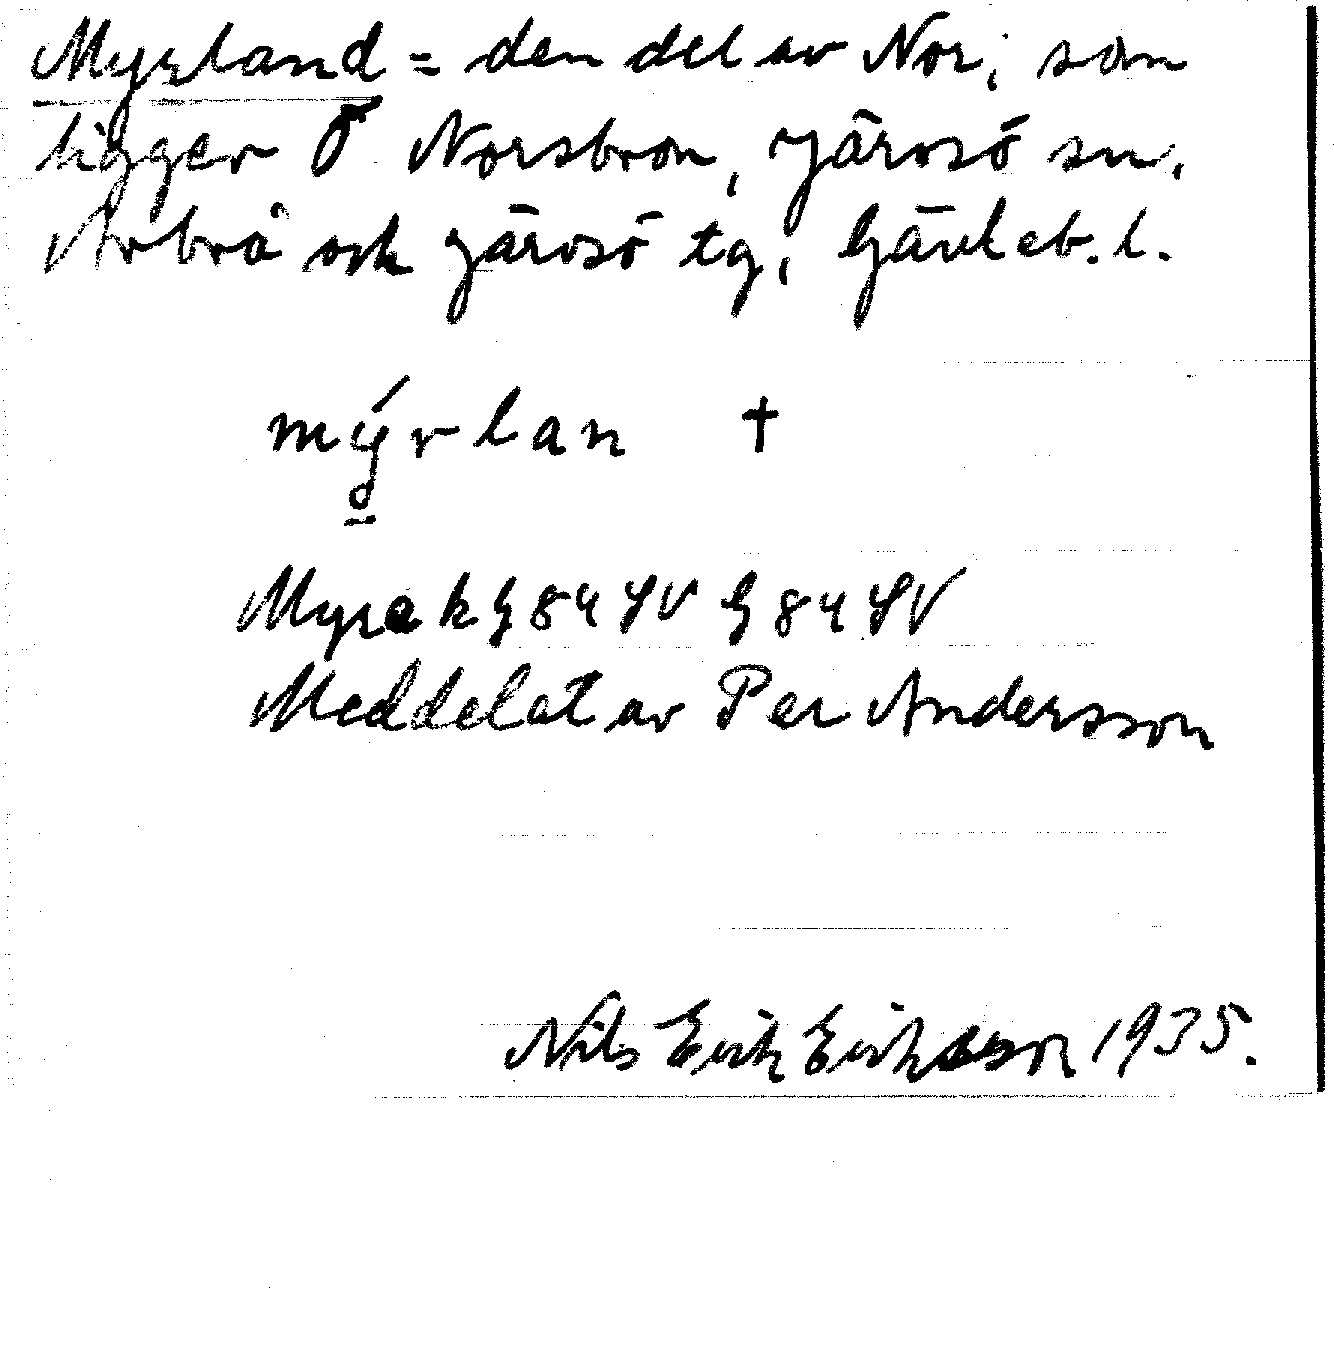 Myrland = den del av Nor, som
ligger Ö Norsbron, Järvsö sn,
Arbrå och Järvsö tg, Gävleb. l.
mýrlan †
Myra k G 84 SV G 84 SV
Meddelat av Per Andersson
Nils Erik Eriksson 1935.